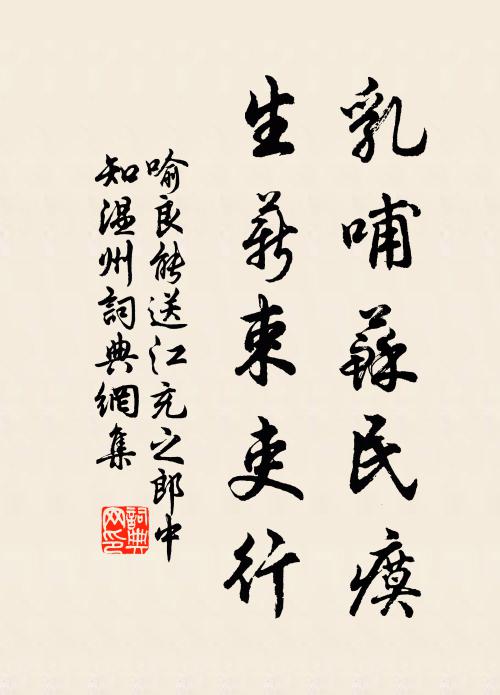 乳哺蘇民瘼
生薪束吏行
喻良能送江充之郎中
知温州詞典網集
詞典网印